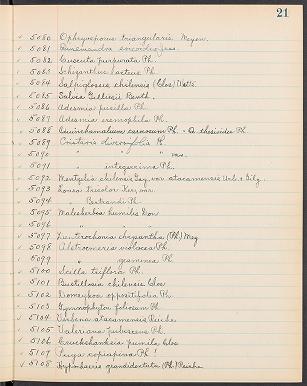 21
5080 Ophryosporus triangularis Meyen.
5081
5082 Cuscuta purpurata Ph.
5083 Schizanthus lacteus Ph.
5084 Salpiglossis chilensis (Clos) Watts
5085 Salvia Gilliesii Benth.
5086 Adesmia pusilla Ph.
5087 Adesmia eremophila Ph.
5088 Quinchamalium Ph.
5089 Cristaria Ph.
5090 " " var.
5091 " integerrima Ph.
5092 Mentzelia chilensis Gay, var. atacamensis Urb. & Gilg.
5093 Loasa tricolor Ker, var.
5094 " Bertrandi Ph.
5095 Malesherbia humilis Don
5096 " "
5097 Leuctrochonia (Ph.) Mey
5098 Alstroemeria violacea Ph.
5099 " graminea Ph.
5100 Scilla triflora Ph.
5101 Bustillosia chilensis Clos
5102 Domeykoa oppositifolia Ph.
5103 Gymnophyton foliosum Ph.
5104 Verbena atacamensis Reiche
5105 Valeriana Ph.
5106 Cruckshanksia pumila Clos
5107 Puya copiapina Ph!
5108 (Ph.) Reiche